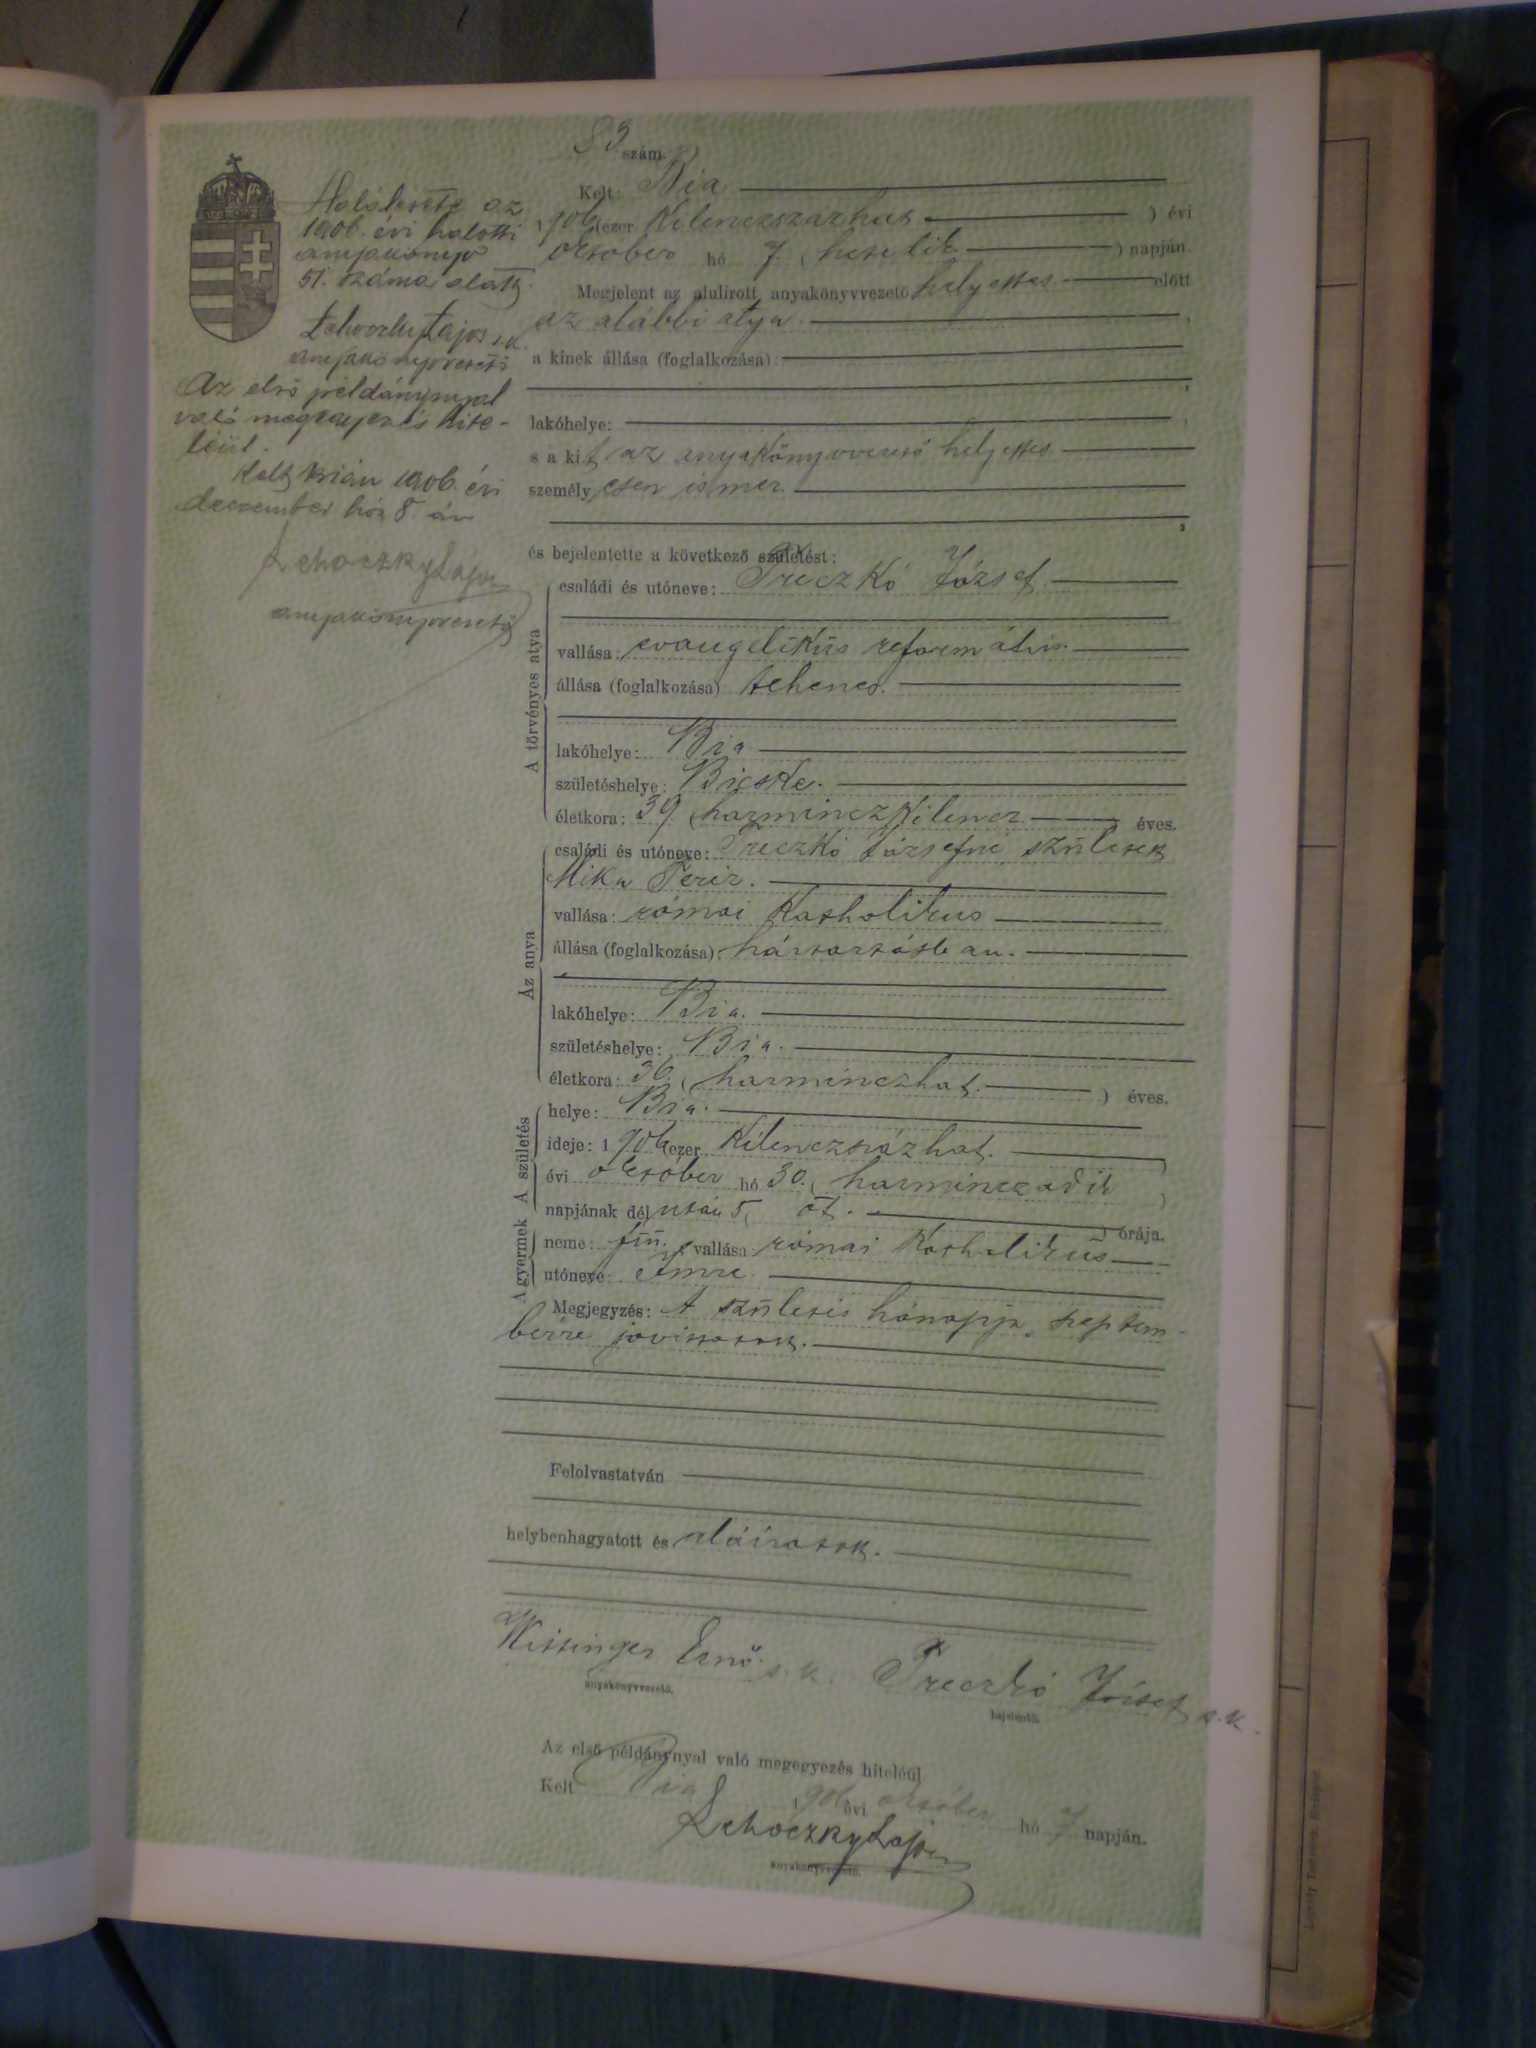 83 szám.
Kelt: Bia
1906 (ezer kilenczszázhat ) évi
október hó 7 (hetedik ) napján.
Megjelent az alulirott anyakönyvvezető helyettes előtt
az alábbi atya
a kinek állása (foglalkozása):
lakóhelye:
s a kit az anyakönyvvezető helyettes
személyesen ismer.
és bejelentette a következő születést:
A törvényes atya
családi és utóneve: Preczkó József
vallása: evangelikus református
állása (foglalkozása) tehenes.
lakóhelye: Bia
születéshelye: Bicske.
életkora: 39 (harminczkilencz éves.
Az anya
családi és utóneve: Preczkó Józsefné született
Mika Teréz.
vallása: római katholikus
állása (foglalkozása): háztartásban.
lakóhelye: Bia.
születéshelye: Bia.
életkora: 36. (harminczhat. ) éves.
A születés
helye: Bia.
ideje: 1906 (ezer kilenczszázhat.
évi október hó 30. (harminczadik )
napjának délután 5 ( öt. ) órája.
A gyermek
neme: fiú. vallása: római katholikus
utóneve: Imre.
Megjegyzés: A születés hónapja, szeptem-
berre javíttatott.
Felolvastatván
helybenhagyatott és aláíratott.
Wittinger Ernő s.k. Preczkó József s.k.
anyakönyvvezető. bejelentő.
Az első példánynyal való megegyezés hiteléül
Kelt Bia 1906 évi október hó 7 napján.
Lehoczky Lajos
anyakönyvvezető.
Halálesete az
1906. évi halotti
anyakönyv
51. száma alatt.
Lehoczky Lajos s.k.
anyakönyvvezető
Az első példánynyal
való megegyezés hite-
léül.
Kelt Bián 1906. évi
deczember hó 8. án
Lehoczky Lajos
anyakönyvvezető